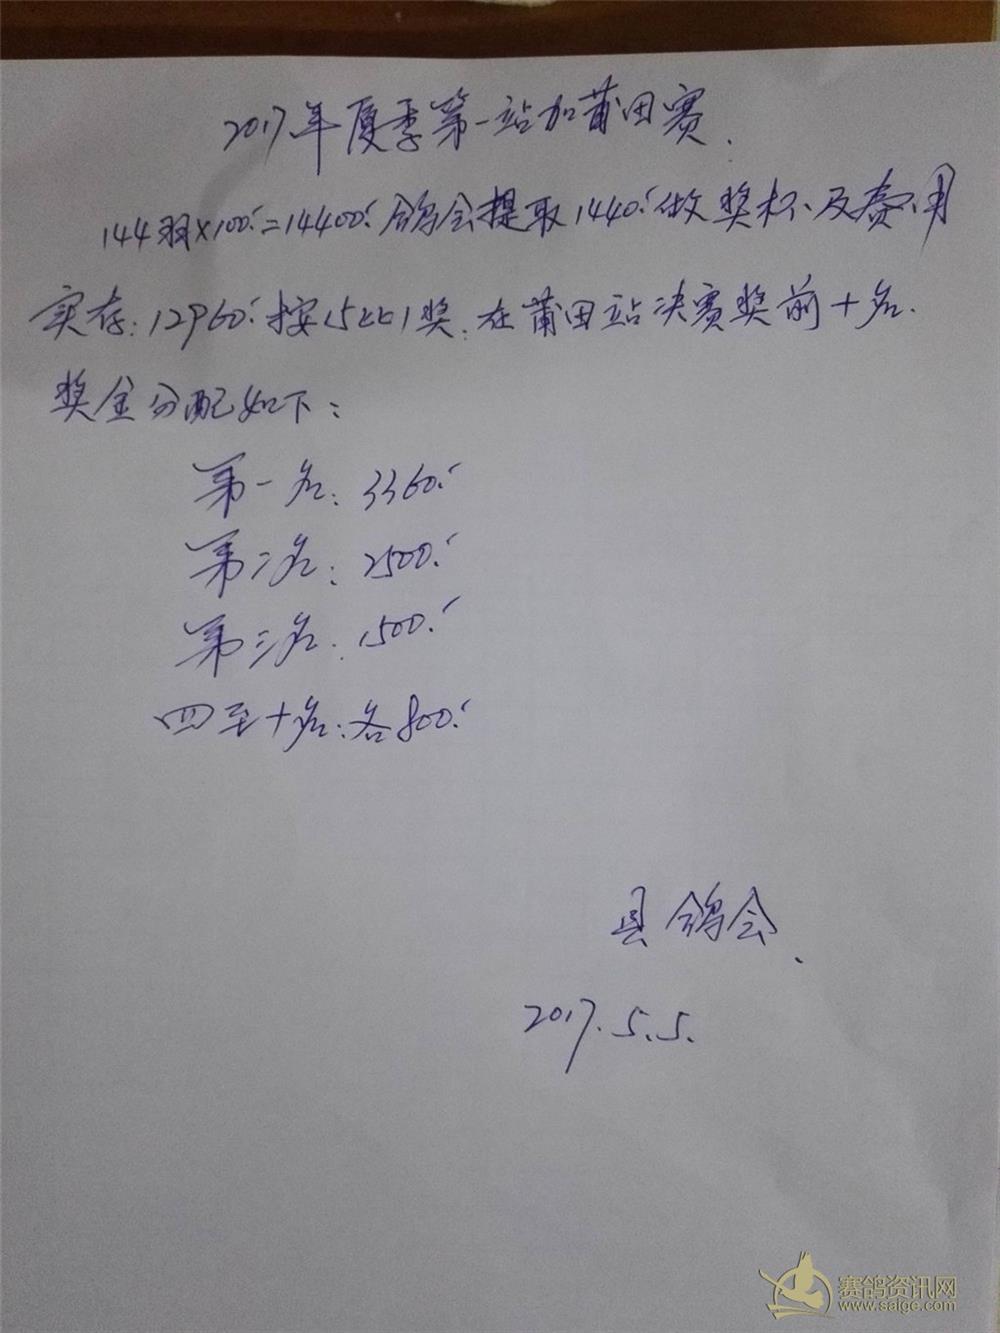 2017年夏季第一站加莆田赛.
144羽×100.-=14400.-鸽会提取1440.-做奖杯、及费用
实存:12960.-按15比1奖.在莆田站决赛奖前十名.
奖金分配如下:
第一名:3360.-
第二名:2500.-
第三名:1500.-
四至十名:各800.-
县鸽会、
2017.5.5.
赛鸽资讯网
www.saige.com